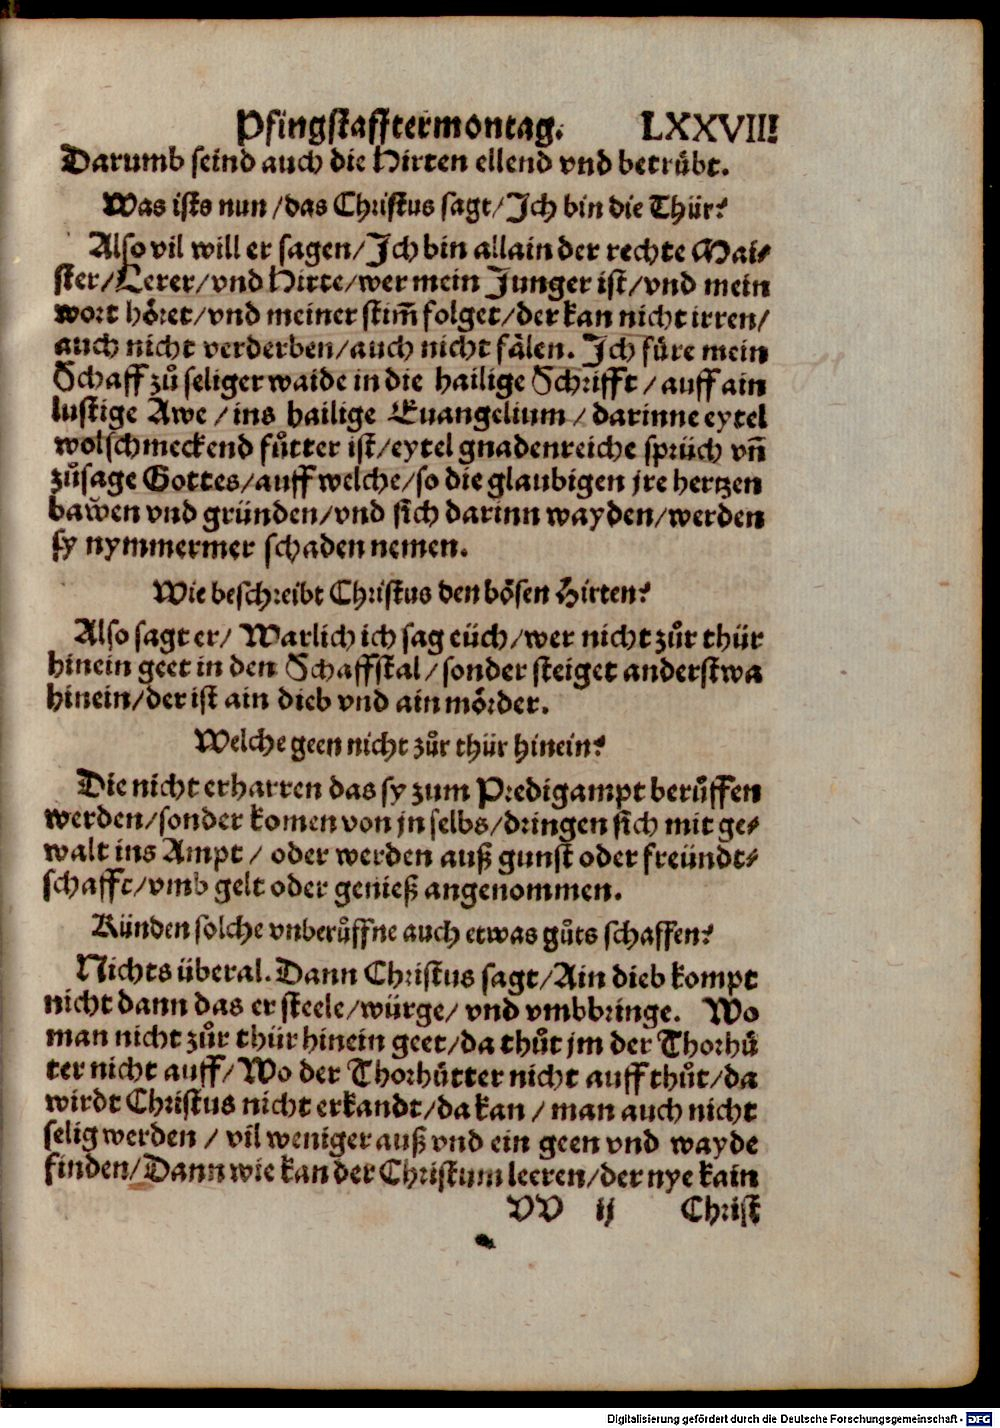 Pfingstafftermontag. LXXVIII
Darumb seind auch die Hirten ellend vnd betruͤbt.
Was ists nun / das Christus sagt / Ich bin die Thür?
Also vil will er sagen / Ich bin allain der rechte Mai⸗
ster / Lerer / vnd Hirte / wer mein Junger ist / vnd mein
wort hoͤret / vnd meiner stim̃ folget / der kan nicht irren /
auch nicht verderben / auch nicht faͤlen. Ich fuͤre mein
Schaff zuͦ seliger waide in die hailige Schrifft / auff ain
lustige Awe / ins hailige Euangelium / darinne eytel
wolschmeckend fuͦtter ist / eytel gnadenreiche sprüch vñ
zuͦsage Gottes / auff welche / so die glaubigen jre hertzen
bawen vnd gründen / vnd sich darinn wayden / werden
sy nymmermer schaden nemen.
Wie beschreibt Christus den boͤsen Hirten?
Also sagt er / Warlich ich sag eüch / wer nicht zuͦr thür
hinein geet in den Schaffstal / sonder steiget anderstwa
hinein / der ist ain dieb vnd ain moͤrder.
Welche geen nicht zuͦr thür hinein?
Die nicht erharren das sy zum Predigampt beruͦffen
werden / sonder komen von jn selbs / dringen sich mit ge⸗
walt ins Ampt / oder werden auß gunst oder freündt⸗
schafft / vmb gelt oder genieß angenommen.
Künden solche vnberuͦffne auch etwas guͦts schaffen?
Nichts überal. Dann Christus sagt / Ain dieb kompt
nicht dann das er steele / würge / vnd vmbbringe. Wo
man nicht zuͦr thür hinein geet / da thuͦt jm der Thorhuͤ
ter nicht auff / Wo der Thorhuͤtter nicht auff thuͦt / da
wirdt Christus nicht erkandt / da kan / man auch nicht
selig werden / vil weniger auß vnd ein geen vnd wayde
finden / Dann wie kan der Christum leeren / der nye kain
VV ij Christ
Digitalisierung gefördert durch die Deutsche Forschungsgemeinschaft - DFG